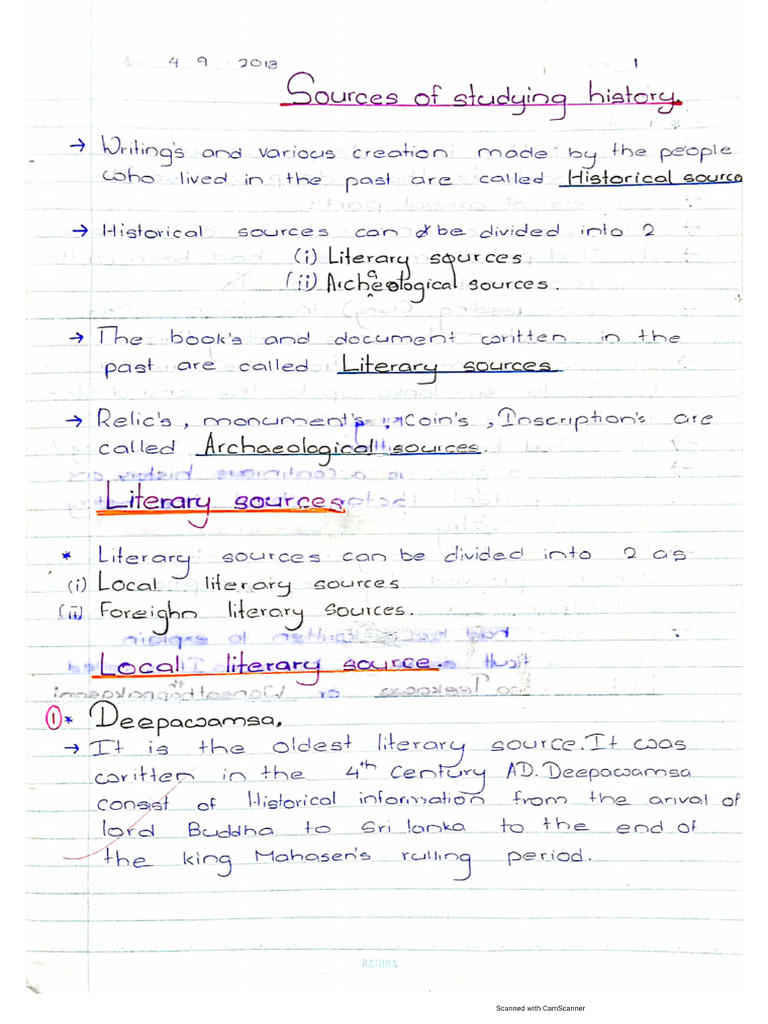 4 9 2018 1
Sources of studying history.
→ Writing's and various creation made by the people
who lived in the past are called Historical source
→ Historical sources can be divided into 2
(i) Literary sources
(ii) Archaeological sources.
→ The book's and document written in the
past are called Literary sources
→ Relic's, monument's, Coin's, Inscription's are
called Archaeological sources.
Literary sources
* Literary sources can be divided into 2 as
(i) Local literary sources
(ii) Foreighn literary sources.
Local literary source.
① * Deepawamsa.
→ It is the oldest literary source. It was
written in the 4th Century AD. Deepawamsa
consist of Historical information from the arival of
lord Buddha to Sri lanka to the end of
the king Mahasen's rulling period.
RATHNA
Scanned with CamScanner